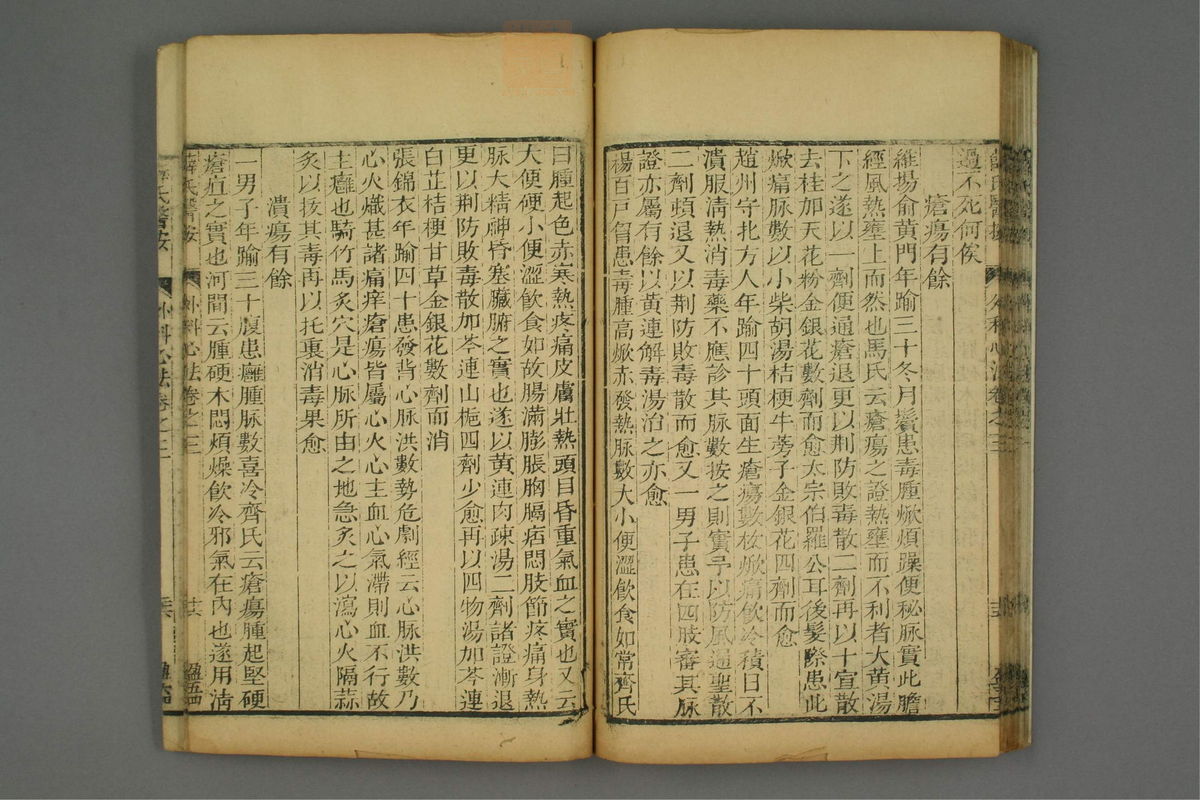 薛氏醫按 外科心法卷之三
過不死何俟
瘡瘍有餘
維揚俞黃門年踰三十冬月鬢患毒腫焮煩躁便秘脉實此膽
經風熱壅上而然也馬氏云瘡瘍之證熱壅而不利者大黃湯
下之遂以一劑便通瘡退更以荆防敗毒散二劑再以十宣散
去桂加天花粉金銀花數劑而愈太宗伯羅公耳後髮際患此
焮痛脉數以小柴胡湯桔梗牛蒡子金銀花四劑而愈
趙州守北方人年踰四十頭面生瘡瘍數枚焮痛飲冷積日不
潰服清熱消毒藥不應診其脉數按之則實予以防風通聖散
二劑頓退又以荆防敗毒散而愈又一男子患在四肢審其脉
證亦屬有餘以黃連解毒湯治之亦愈
楊百戶胷患毒腫高焮赤發熱脉數大小便澀飲食如常齊氏
曰腫起色赤寒熱疼痛皮膚壯熱頭目昏重氣血之實也又云
大便硬小便澀飲食如故腸滿膨脹胸膈痞悶肢節疼痛身熱
脉大精神昏塞臟腑之實也遂以黃連內疎湯二劑諸證漸退
更以荆防敗毒散加芩連山梔四劑少愈再以四物湯加芩連
白芷桔梗甘草金銀花數劑而消
張錦衣年踰四十患發背心脉洪數勢危劇經云心脉洪數乃
心火熾甚諸痛痒瘡瘍皆屬心火心主血心氣滯則血不行故
主癰也騎竹馬灸穴是心脉所由之地急灸之以瀉心火隔蒜
灸以拔其毒再以托裏消毒果愈
潰瘍有餘
一男子年踰三十腹患癰腫脉數喜冷齊氏云瘡瘍腫起堅硬
瘡疽之實也河間云腫硬木悶煩燥飲冷邪氣在內也遂用清
薛氏醫按 外科心法卷之三